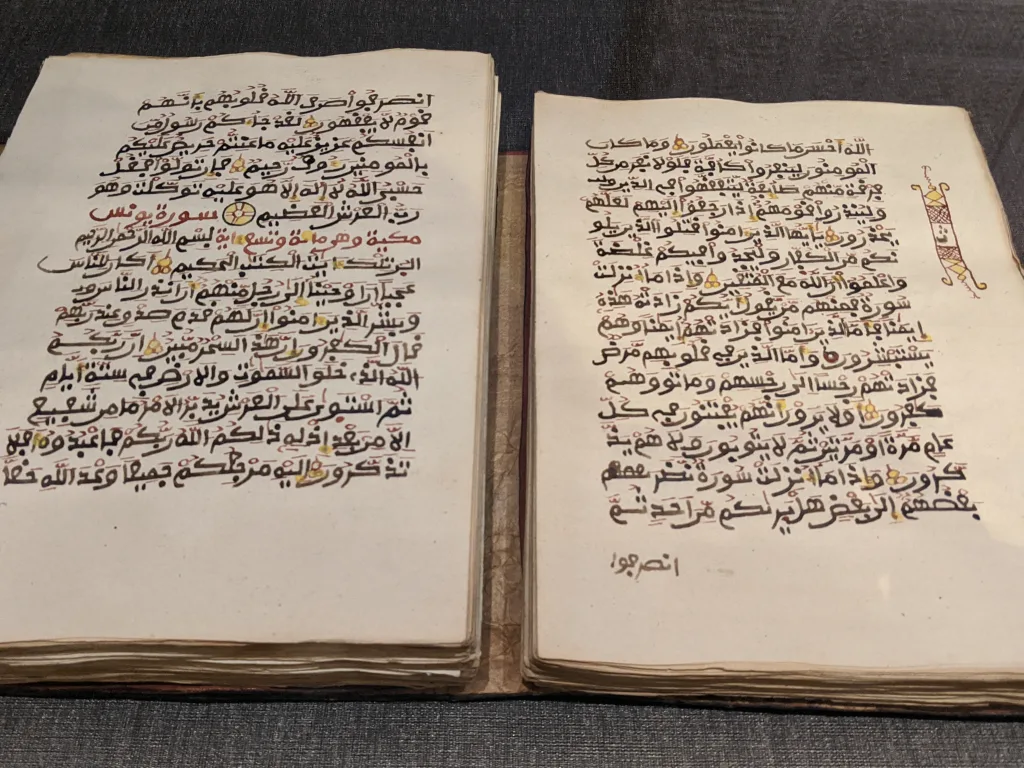 الله أحسن ما كانوا يعملون وما كان
المومنون لينفروا كافة فلولا نفر من كل
فرقة منهم طائفة ليتفقهوا في الدين
ولينذروا قومهم إذا رجعوا إليهم لعلهم
يحذرون يأيها الذين ءامنوا قتلوا الذين يلو
نكم من الكفار وليجدوا فيكم غلظة
واعلموا أن الله مع المتقين وإذا ما أنزلت
سورة فمنهم من يقول أيكم زادته هذه
إيمنا فأما الذين ءامنوا فزادتهم إيمنا وهم
يستبشرون وأما الذين في قلوبهم مرض
فزادتهم رجسا إلى رجسهم وماتوا وهم
كفرون أولا يرون أنهم يفتنون في كل
عام مرة أو مرتين ثم لا يتوبون ولا هم يذ
كرون وإذا ما أنزلت سورة نظر
بعضهم إلى بعض هل يريكم من أحد ثم
انصرفوا
انصرفوا صرف الله قلوبهم بأنهم
قوم لا يفقهون لقد جاءكم رسول من
أنفسكم عزيز عليه ما عنتم حريص عليكم
بالمومنين رءوف رحيم فإن تولوا فقل
حسبي الله لا إله إلا هو عليه توكلت وهو
رب العرش العظيم سورة يونس
مكية وهي مائة وتسع ءاية بسم الله الرحمن الرحيم
الر تلك ءايت الكتب الحكيم أكان للناس
عجبا أن أوحينا إلى رجل منهم أن أنذر الناس
وبشر الذين ءامنوا أن لهم قدم صدق عند ربهم
قال الكفرون إن هذا لسحر مبين إن ربكم
الله الذي خلق السموت والارض في ستة أيام
ثم استوى على العرش يدبر الامر ما من شفيع
إلا من بعد إذنه ذلكم الله ربكم فاعبدوه أفلا
تذكرون إليه مرجعكم جميعا وعد الله حقا